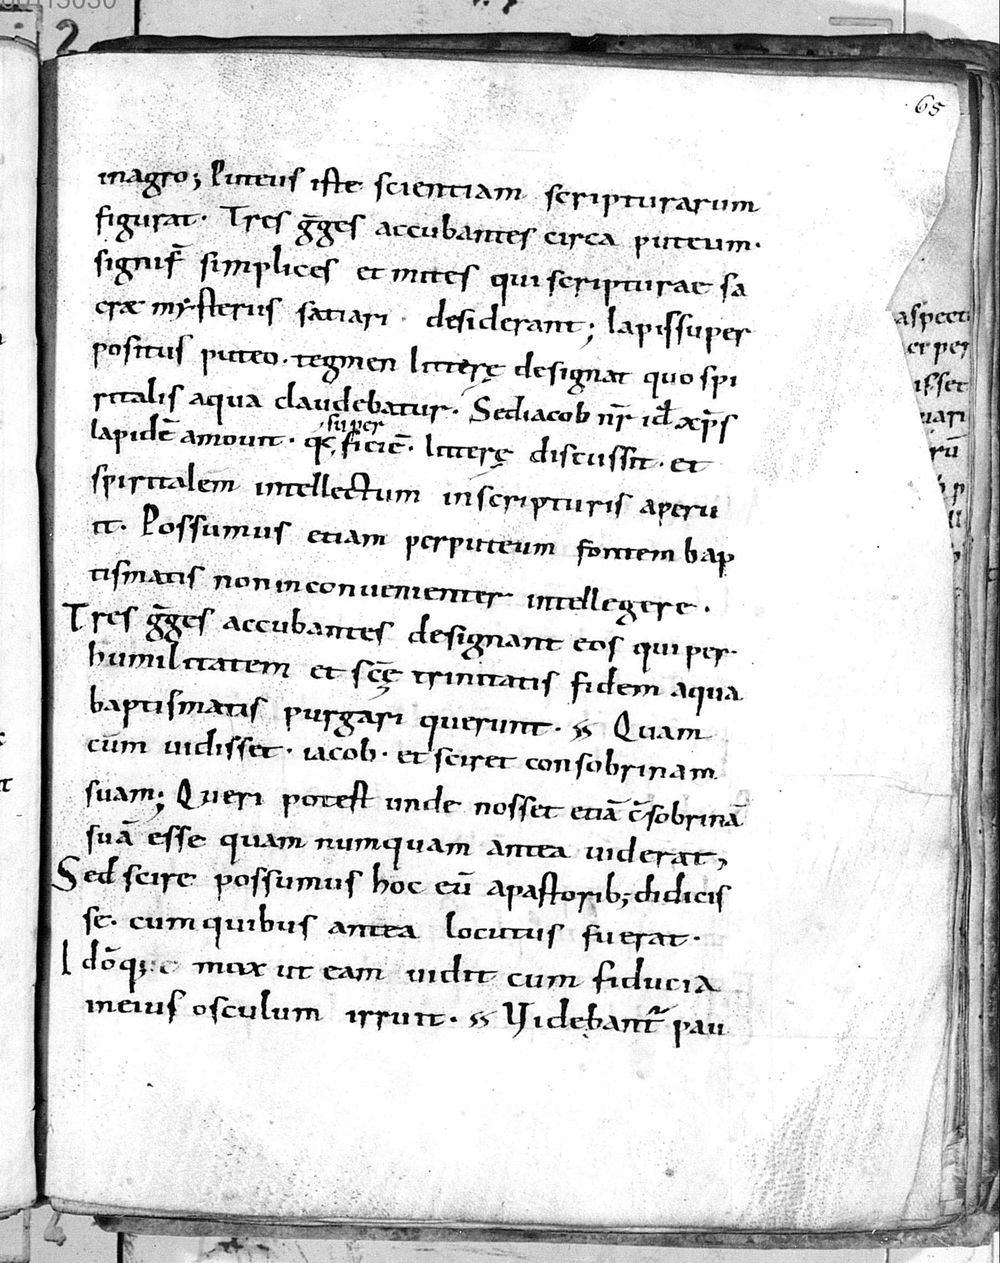 65
inagro; Puteus iste scientiam scripturarum
figurat· Tres g̅ges accubantes circa puteum·
signif̅ simplices et mites qui scripturae sa
cræ mysteriis satiari desiderant; lapissuper
positus puteo· tegmen litterę designat quo spi
ritalis aqua claudebatur· Sediacob nr̅ id̅ xp̅s
lapidē amouit· q; super ficiē· litterę discussit· et
spiritalem intellectum inscripturis aperu
it· Possumus etiam perputeum fontem bap
tismatis noninconuenienter intellegere·
Tres g̅ges accubantes designant eos qui per·
humilitatem et sc̅ę trinitatis fidem aqua
baptismatis purgari querunt· Quam
cum uidisset· iacob· et sciret consobrinam
suam; Queri potest unde nosset etiā c̅sobrinā
suā esse quam numquam antea uiderat;
Sed scire possumus hoc eū apastorib; didicis
se· cum quibus antea locutus fuerat·
Idōq; mox ut eam uidit cum fiducia
ineius osculum irruit· Uidebant̅ pau
aspecti
er per
isset
uari
rū